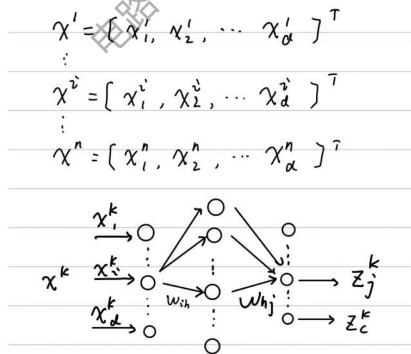 电路
x¹ = [ x₁¹, x₂¹, ⋯ x_d¹ ]ᵀ
⋮
xⁱ = [ x₁ⁱ, x₂ⁱ, ⋯ x_dⁱ ]ᵀ
⋮
xⁿ = [ x₁ⁿ, x₂ⁿ, ⋯ x_dⁿ ]ᵀ
x₁ᵏ
xᵏ xᵢᵏ w_ih w_hj z_jᵏ
x_dᵏ z_cᵏ